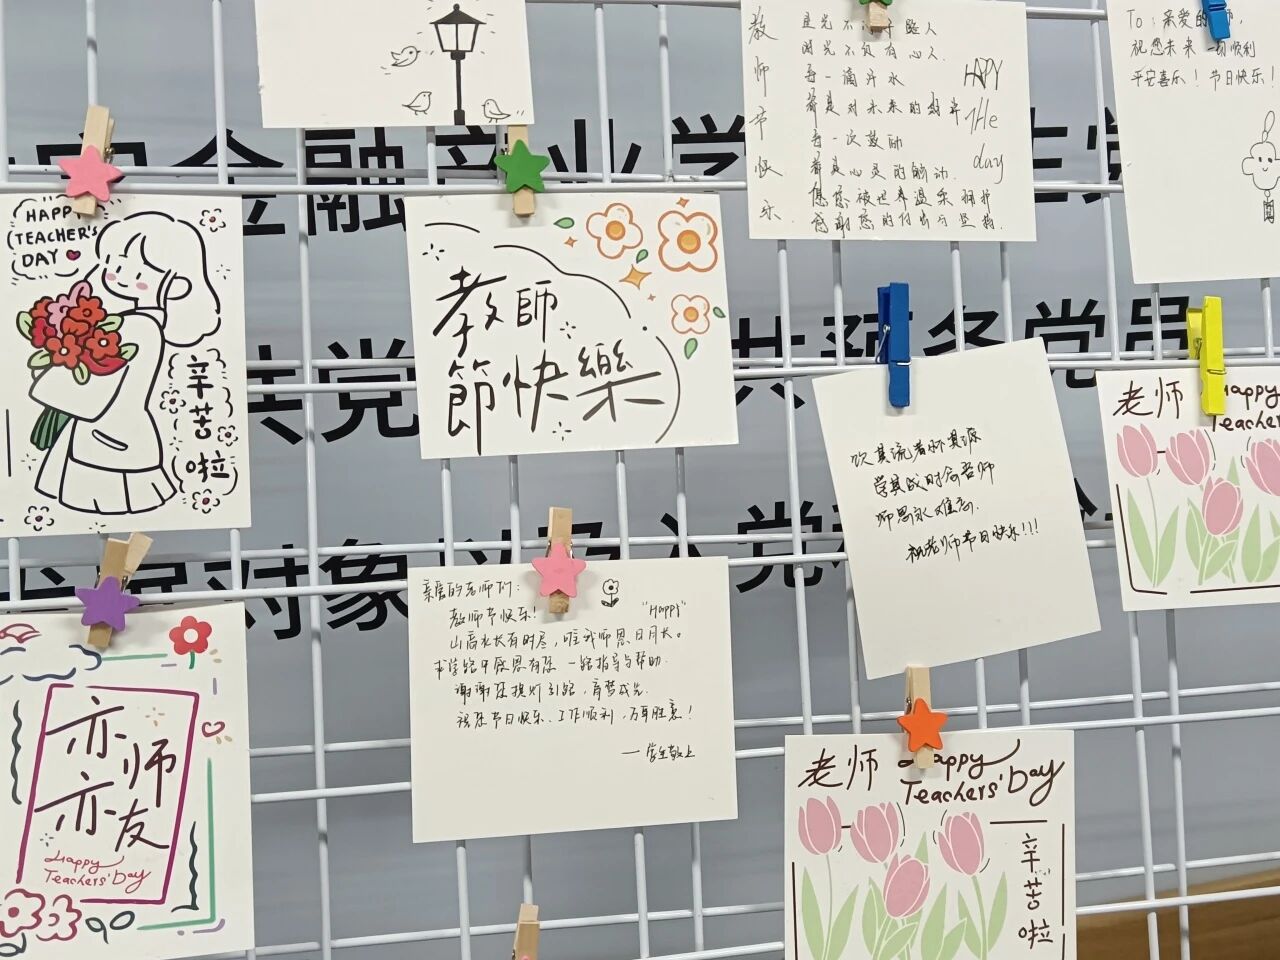 教师节快乐
星光不
时光不负有心人
每一滴汗水
都是对未来的
每一次鼓励
都是心灵的触动
您您被世界温柔拥护
感谢您的付出与坚持.
HAPPY
THe
day
To:亲爱的 师,
祝您未来一切顺利
平安喜乐!节日快乐!
金融产业学
共党
共预备党员
对象以及入党
HAPPY
TEACHER'S
DAY
辛苦啦
教師
節快樂
饮其流者怀其源
学其成时念吾师
师恩永难忘.
祝老师节日快乐!!!
老师 Happy
Teache
亲爱的老师们:
教师节快乐!
"Happy"
山高水长有时尽,唯我师恩日月长。
求学路上感恩有您 一路指导与帮助.
谢谢您提灯引路,育梦成光.
祝您节日快乐、工作顺利,万事胜意!
——学生敬上
亦师
亦友
Happy
Teachers' Day
老师 Happy
Teachers' Day
辛苦啦